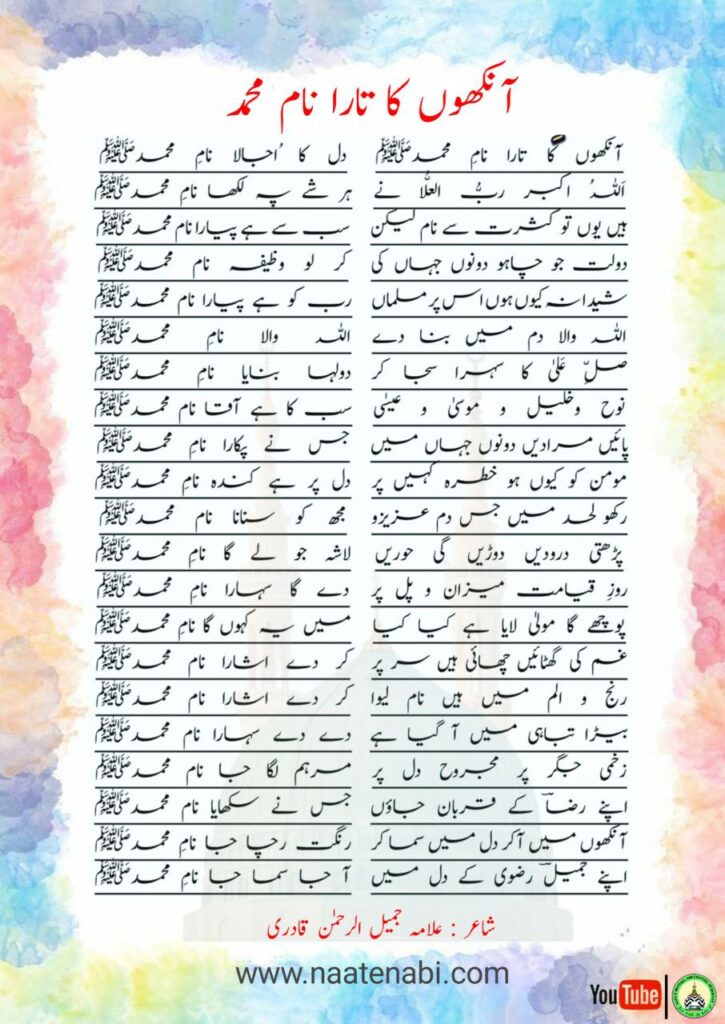 آنکھوں کا تارا نام محمد
آنکھوں کا تارا نامِ محمدﷺ دل کا اُجالا نامِ محمدﷺ
اَللہُ اکبر ربُّ العلّا نے ہر شے پہ لکھا نامِ محمدﷺ
ہیں یوں تو کثرت سے نام لیکن سب سے ہے پیارا نام محمدﷺ
دولت جو چاہو دونوں جہاں کی کر لو وظیفہ نام محمدﷺ
شیدا نہ کیوں ہوں اس پر مسلماں رب کو ہے پیارا نام محمدﷺ
اللہ والا دم میں بنا دے اللہ والا نامِ محمدﷺ
صلِّ عَلیٰ کا سہرا سجا کر دولہا بنایا نامِ محمدﷺ
نوح وخلیل و موسیٰ و عیسیٰ سب کا ہے آقا نام محمدﷺ
پائیں مرادیں دونوں جہاں میں جس نے پکارا نامِ محمدﷺ
مومن کو کیوں ہو خطرہ کہیں پر دل پر ہے کندہ نام محمدﷺ
رکھو لحد میں جس دم عزیزو مجھ کو سنانا نام محمدﷺ
پڑھتی درودیں دوڑیں گی حوریں لاشہ جو لے گا نامِ محمدﷺ
روزِ قیامت میزان و پل پر دے گا سہارا نام محمدﷺ
پوچھے گا مولیٰ لایا ہے کیا کیا میں یہ کہوں گا نامِ محمدﷺ
غم کی گھٹائیں چھائی ہیں سر پر کر دے اشارا نام محمدﷺ
رنج و الم میں ہیں نام لیوا کر دے اشارا نام محمدﷺ
بیڑا تباہی میں آ گیا ہے دے دے سہارا نام محمدﷺ
زخمی جگر پر مجروح دل پر مرہم لگا جا نام محمدﷺ
اپنے رضاؔ کے قربان جاؤں جس نے سکھایا نام محمدﷺ
آنکھوں میں آکر دل میں سما کر رنگت رچا جا نامِ محمدﷺ
اپنے جمیلؔ رضوی کے دل میں آ جا سما جا نامِ محمدﷺ
شاعر : علامہ جمیل الرحمٰن قادری
www.naatenabi.com
YouTube